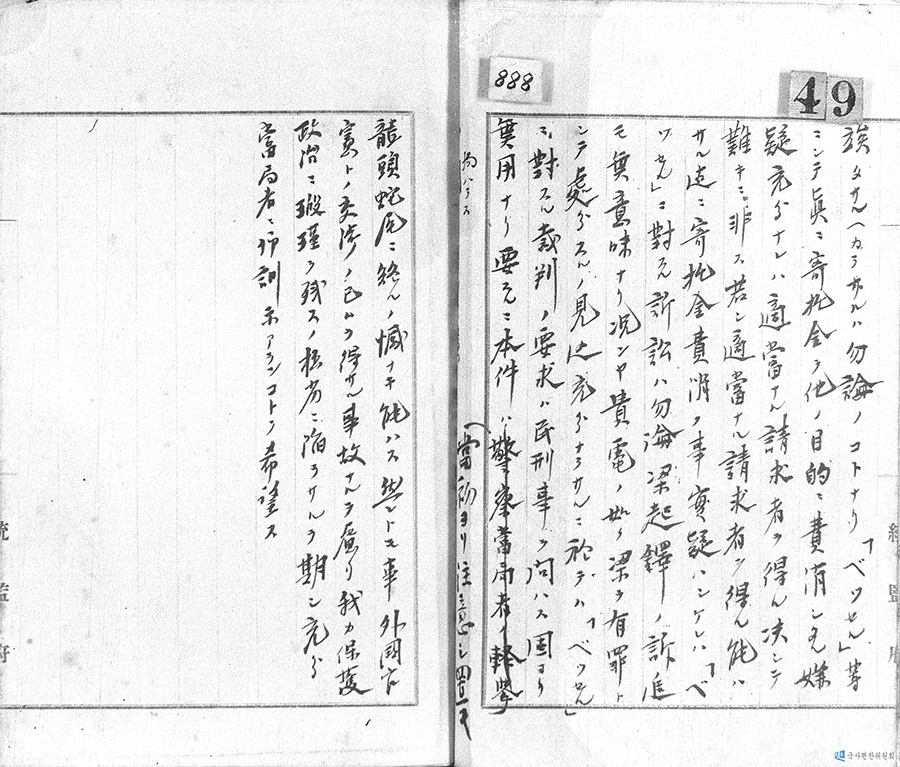 888
49
族タサルヘカラサルハ勿論ノコトナリ「ベツセル」等
ニシテ眞ニ寄托金ヲ他ノ目的ニ費消シタル嫌
疑充分ナレハ適當ナル請求者ヲ得ル决シテ
難キニ非ス若シ適當ナル請求者ヲ得ル能ハ
サル迄ニ寄托金費消ノ事實疑ハシケレハ「ベ
ツセル」ニ對スル訴訟ハ勿論梁起鐸ノ訴追
モ無意味ナリ况ンヤ貴電ノ如ク梁ヲ有罪ト
シテ處分スルノ見込充分ナラサルニ於テハ「ベツセル」
ニ對スル裁判ノ要求ハ民刑事ヲ問ハス固ヨリ
無用ナリ要スルニ本件ハ警察當局者ノ輕擧
當初ヨリ注意シ置
龍頭蛇尾ニ終ルノ憾ナキ能ハス然レトモ事外國官
憲トノ交渉ノ已ムヲ得サル事故ナルヲ慮リ我カ保護
政治ニ瑕瑾ヲ残スノ極端ニ陷ラサルヲ期シ充分
當局者ニ御訓示アランコトヲ希望ス
統監府
統監府
국사편찬위원회